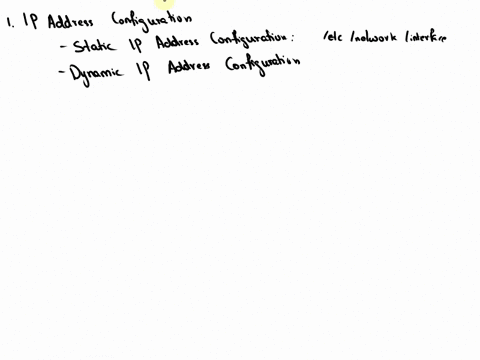 1. IP Address Configuration
- Static IP Address Configuration: /etc /network /interface
- Dynamic IP Address Configuration